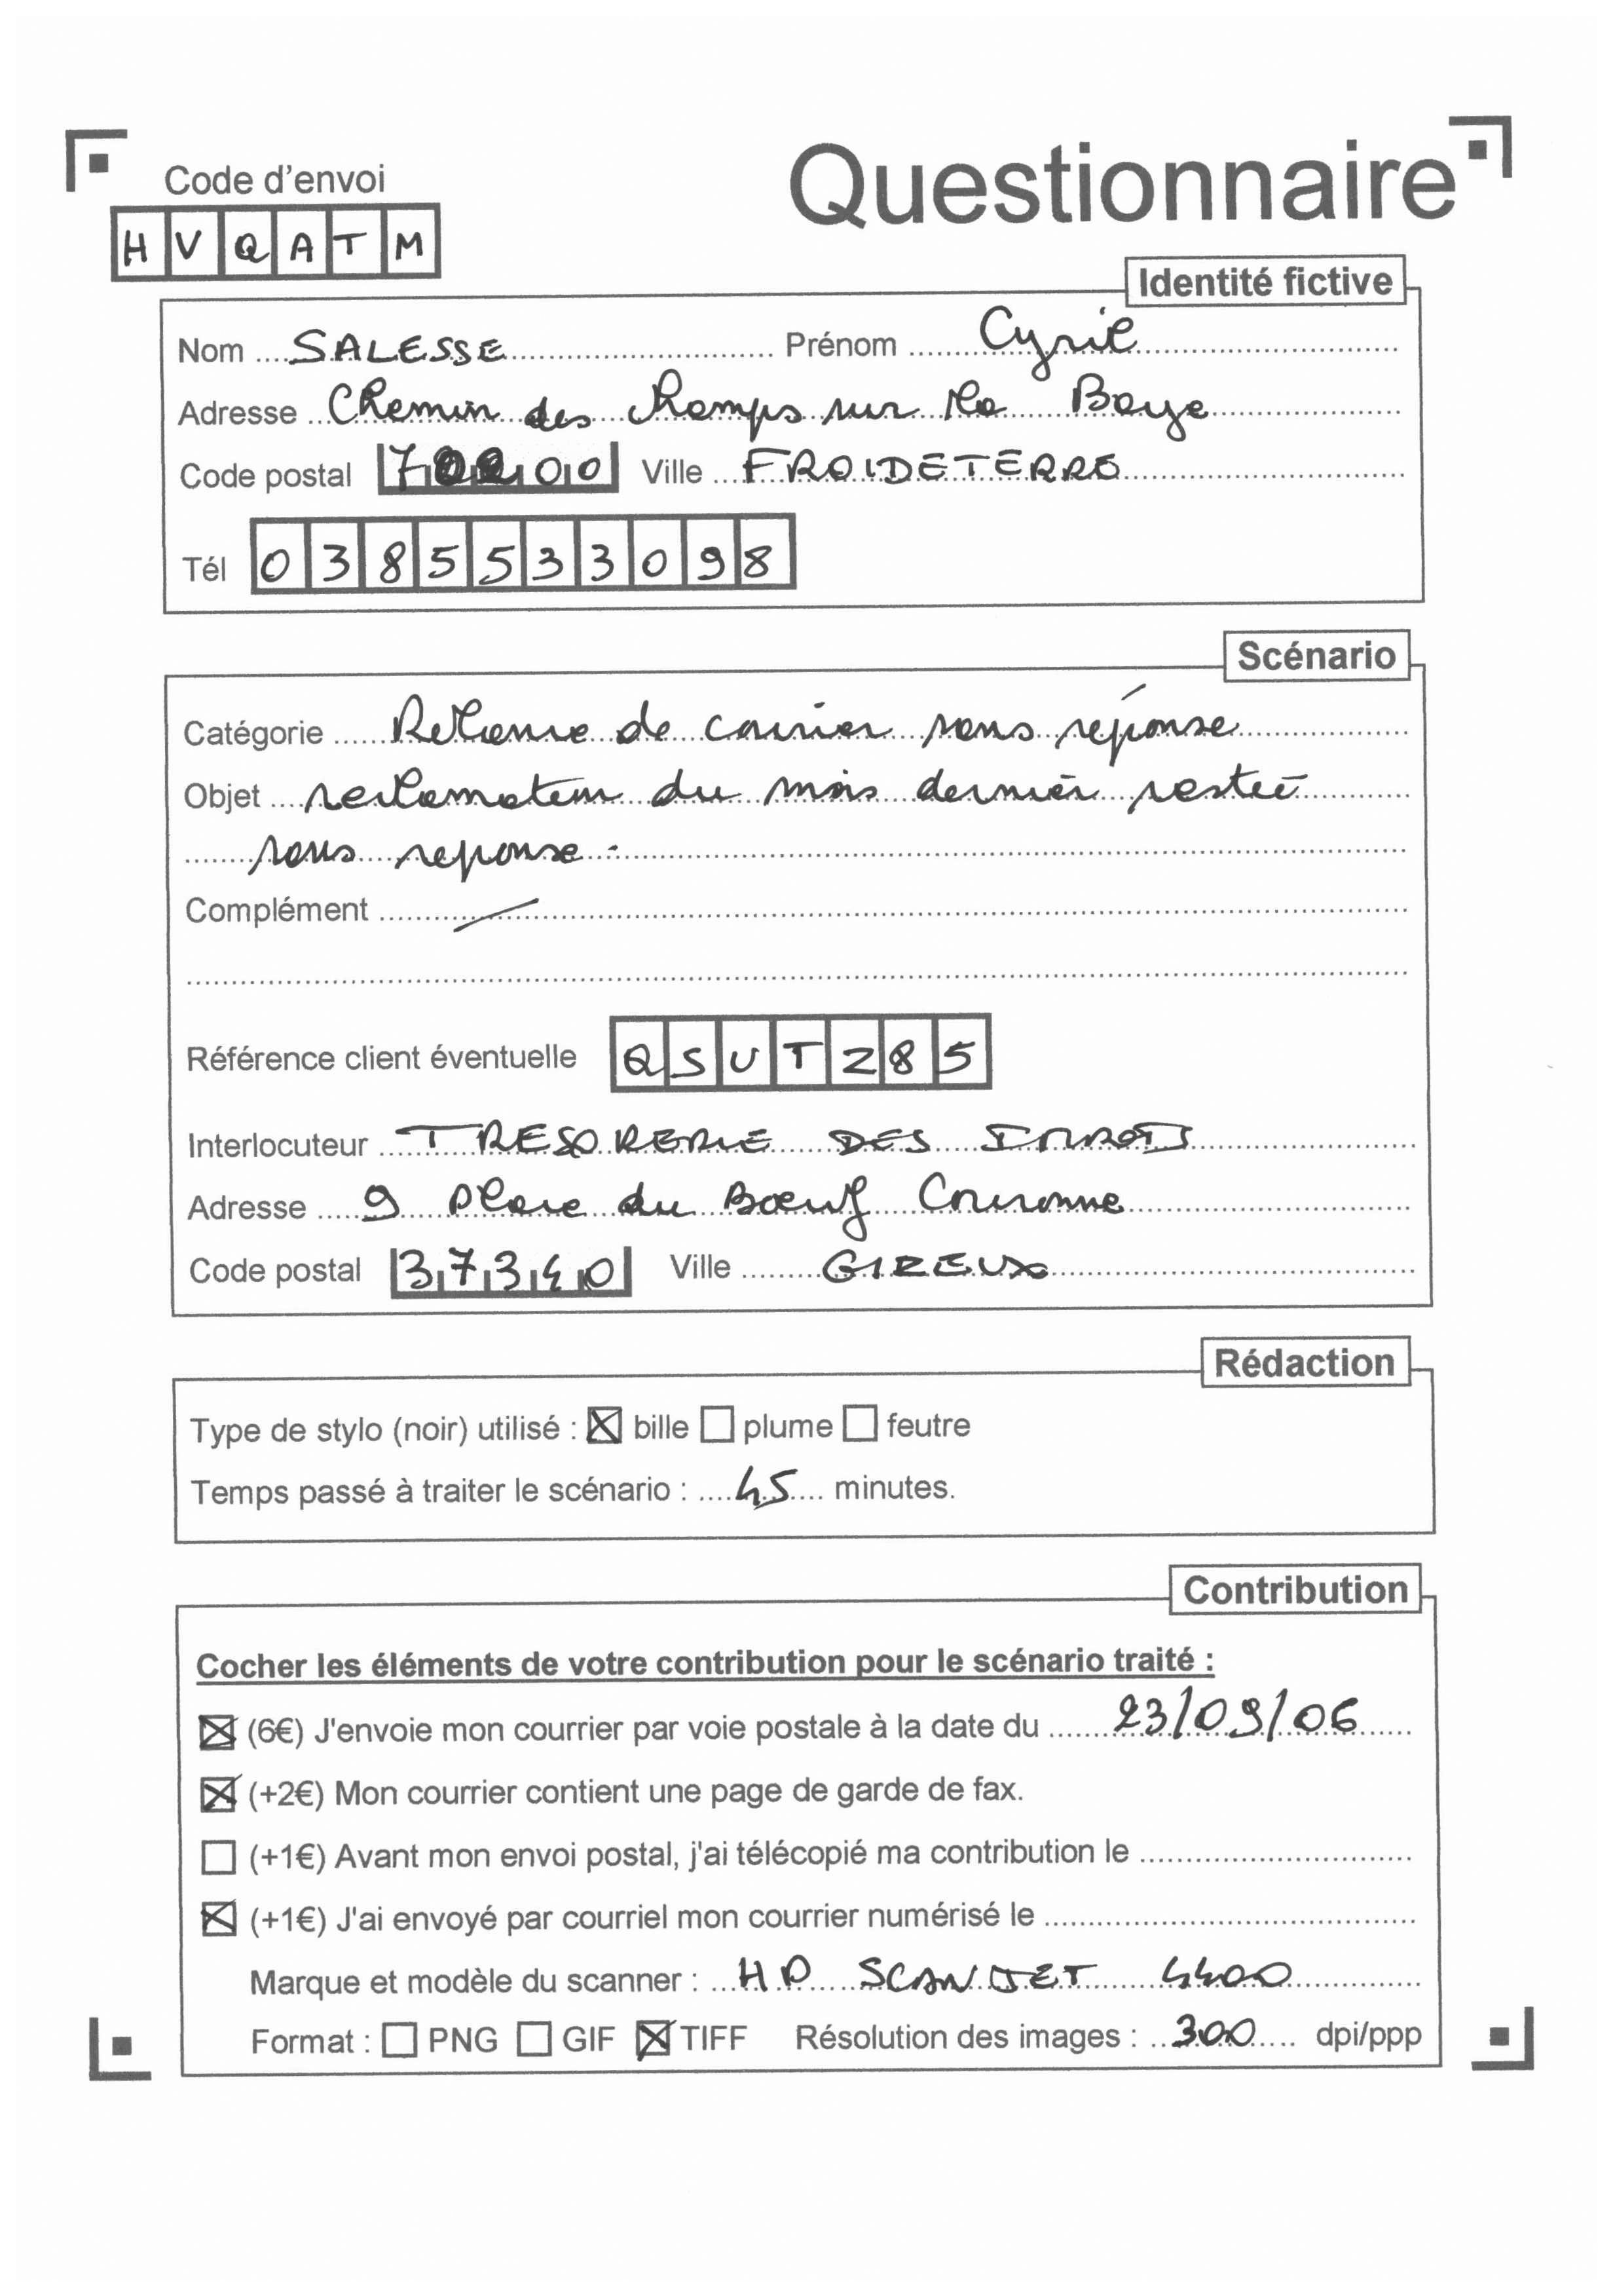 Code d'envoi
Questionnaire
H V Q A T M
Identité fictive
Nom SALESSE Prénom Cyril
Adresse Chemin des champs sur la Baye
Code postal 70200 Ville FROIDETERRE
Tél 0385533098
Scénario
Catégorie Relance de courrier sans réponse
Objet reclamation du mois dernier restée
sans reponse.
Complément
Référence client éventuelle QSUTZ85
Interlocuteur TRESORERIE DES IMPOTS
Adresse 9 place du Bœuf Couronne
Code postal 37340 Ville GIZEUX
Rédaction
Type de stylo (noir) utilisé : bille plume feutre
Temps passé à traiter le scénario : 45 minutes.
Contribution
Cocher les éléments de votre contribution pour le scénario traité :
(6€) J'envoie mon courrier par voie postale à la date du 23/09/06
(+2€) Mon courrier contient une page de garde de fax.
(+1€) Avant mon envoi postal, j'ai télécopié ma contribution le
(+1€) J'ai envoyé par courriel mon courrier numérisé le
Marque et modèle du scanner : HP SCANJET 4400
Format : PNG GIF TIFF Résolution des images : 300 dpi/ppp